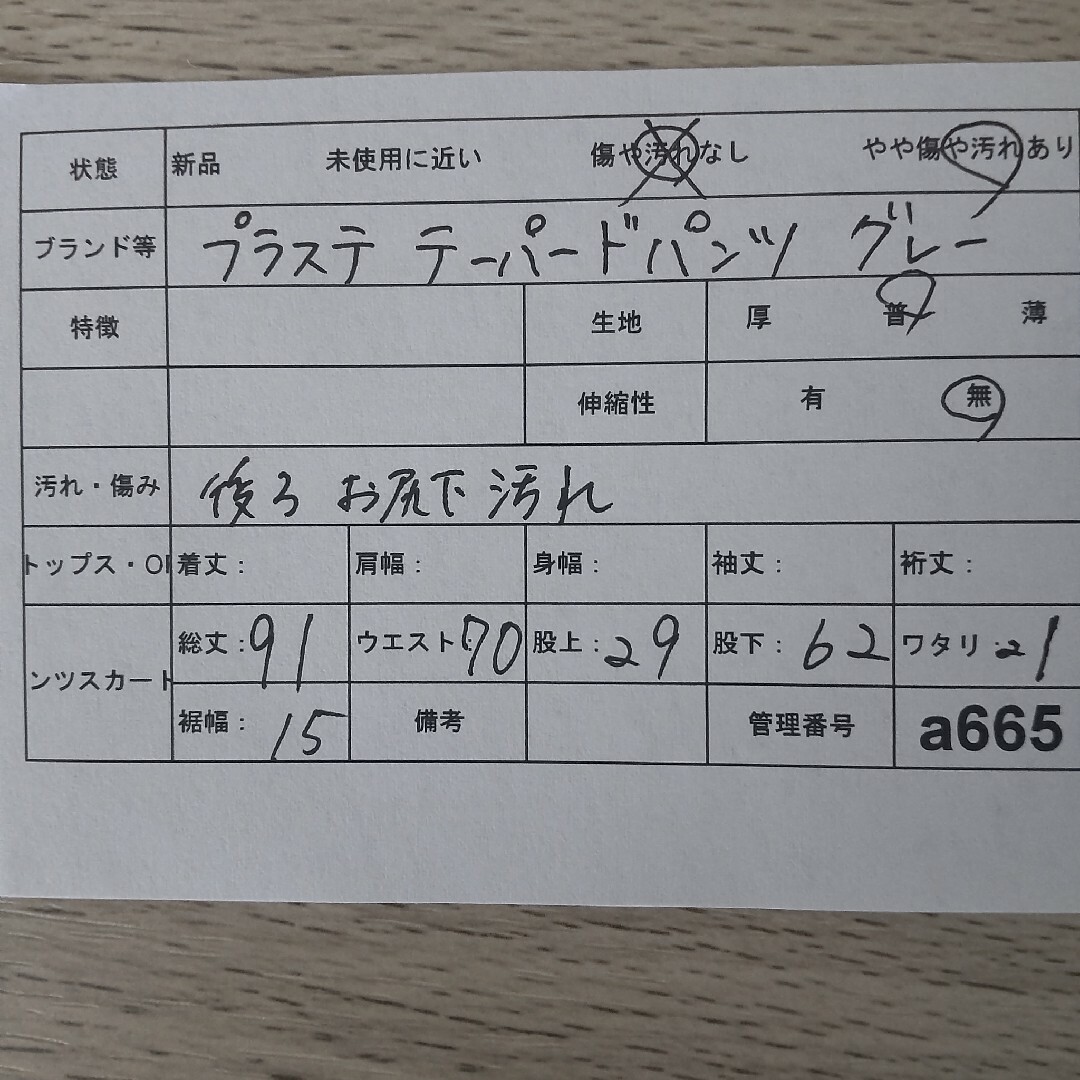 状態 新品 未使用に近い 傷や汚れなし やや傷や汚れあり
ブランド等 プラステ テーパードパンツ グレー
特徴 生地 厚 普 薄
伸縮性 有 無
汚れ・傷み 後ろ お尻下 汚れ
トップス・O 着丈: 肩幅: 身幅: 袖丈: 裄丈:
ンツスカート 総丈:91 ウエスト:70 股上:29 股下:62 ワタリ:21
裾幅:15 備考 管理番号 a665